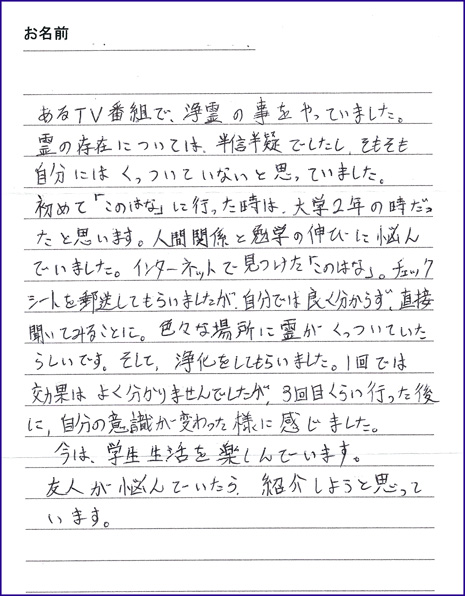 お名前
あるTV番組で、浄霊の事をやっていました。
霊の存在については、半信半疑でしたし、そもそも
自分にはくっついていないと思っていました。
初めて「このはな」に行った時は、大学2年の時だっ
たと思います。人間関係と勉学の伸びに悩ん
でいました。インターネットで見つけた「このはな」。チェック
シートを郵送してもらいましたが、自分では良く分からず、直接
聞いてみることに。色々な場所に霊がくっついていた
らしいです。そして、浄化をしてもらいました。1回では
効果はよく分かりませんでしたが、3回目くらい行った後
に、自分の意識が変わった様に感じました。
今は、学生生活を楽しんでいます。
友人が悩んでいたら、紹介しようと思って
います。